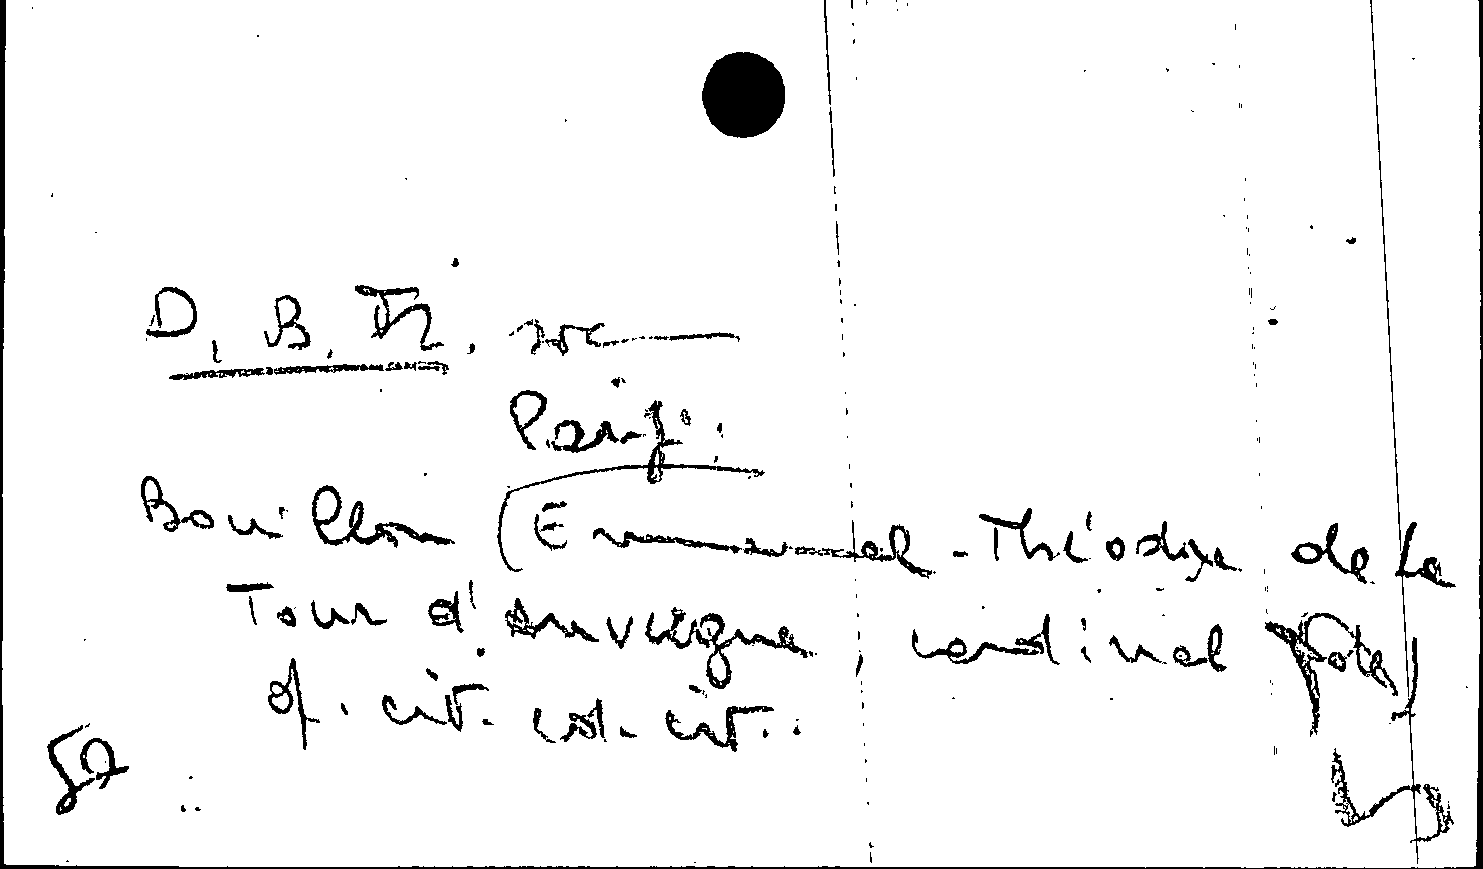 D. B. Th.
Bouillon (Emmanuel-Théodose de la
Tour d'Auvergne, cardinal
op. cit. col. cit.